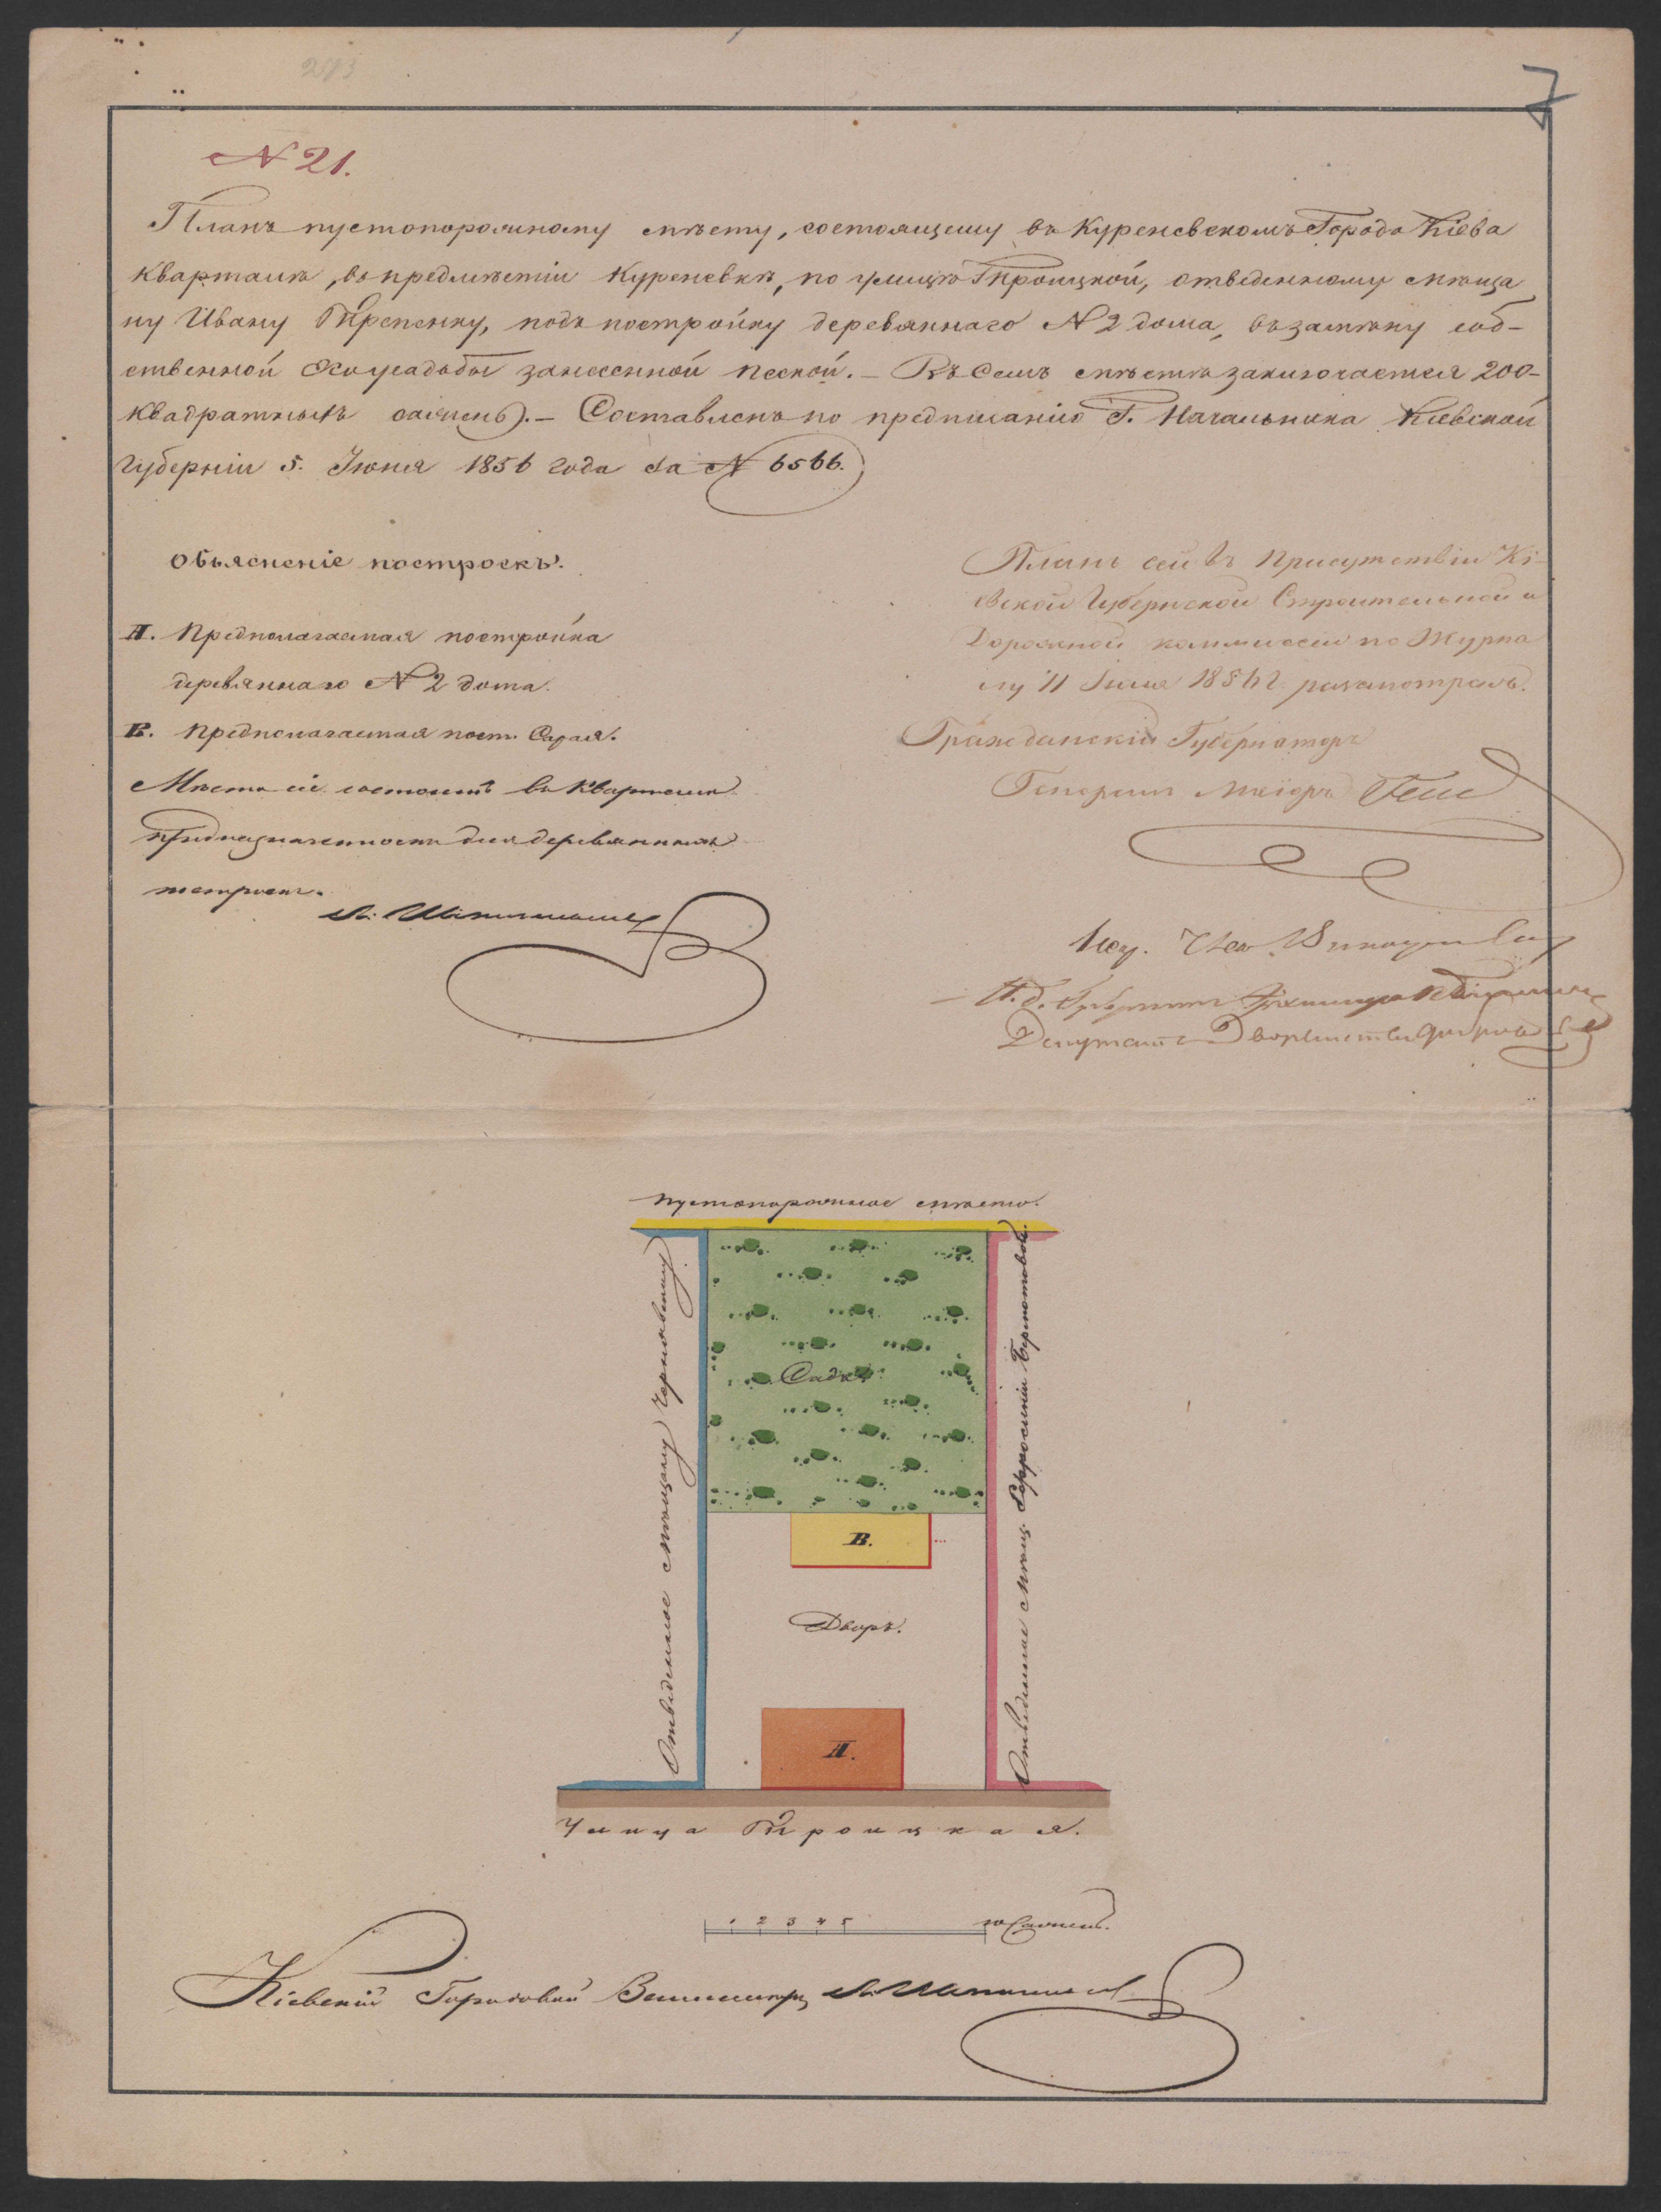 283
7
N 21.
Планъ пустопорожному мѣсту, состоящему въ Куреневскомъ Города Кіева
Кварталѣ, въ предмѣстіи Куреневкѣ, по улицѣ Троицкой, отведенному мѣща
ну Ивану Трепенку, подъ постройку деревяннаго N 2 дома, въ замѣну соб-
ственной усадьбы занесенной пеской. – Въ семъ мѣстѣ заключается 200-
квадратныхъ сажень). – Составленъ по предписанію Г. Начальника Кіевской
Губерніи 5. Іюня 1856 года за N 6566.
Объясненіе построекъ.
А. Предполагаемая постройка
деревяннаго N 2 дома.
В. Предполагаемая пост. Сарая.
Мѣсто сіе состоитъ въ Кварталѣ
предназначенномъ для деревянныхъ
построекъ.
Планъ сей въ Присутствіи Кі-
евской Губернской Строительной и
Дорожной коммиссіи по Журна
лу 11 1856 г. разсмотренъ.
Гражданскій Губернаторъ
Генералъ Маіоръ Гессе
Депутатъ Дворянства
Пустопорожнее мѣсто.
Отведенное мѣщанину Чернявскому.
Садъ
Отведенное мѣщ. Ефросиніи
В.
Дворъ.
А.
Улица Троицкая.
1 2 3 4 5 10 Сажень.
Кіевскій Городовой Землемѣръ